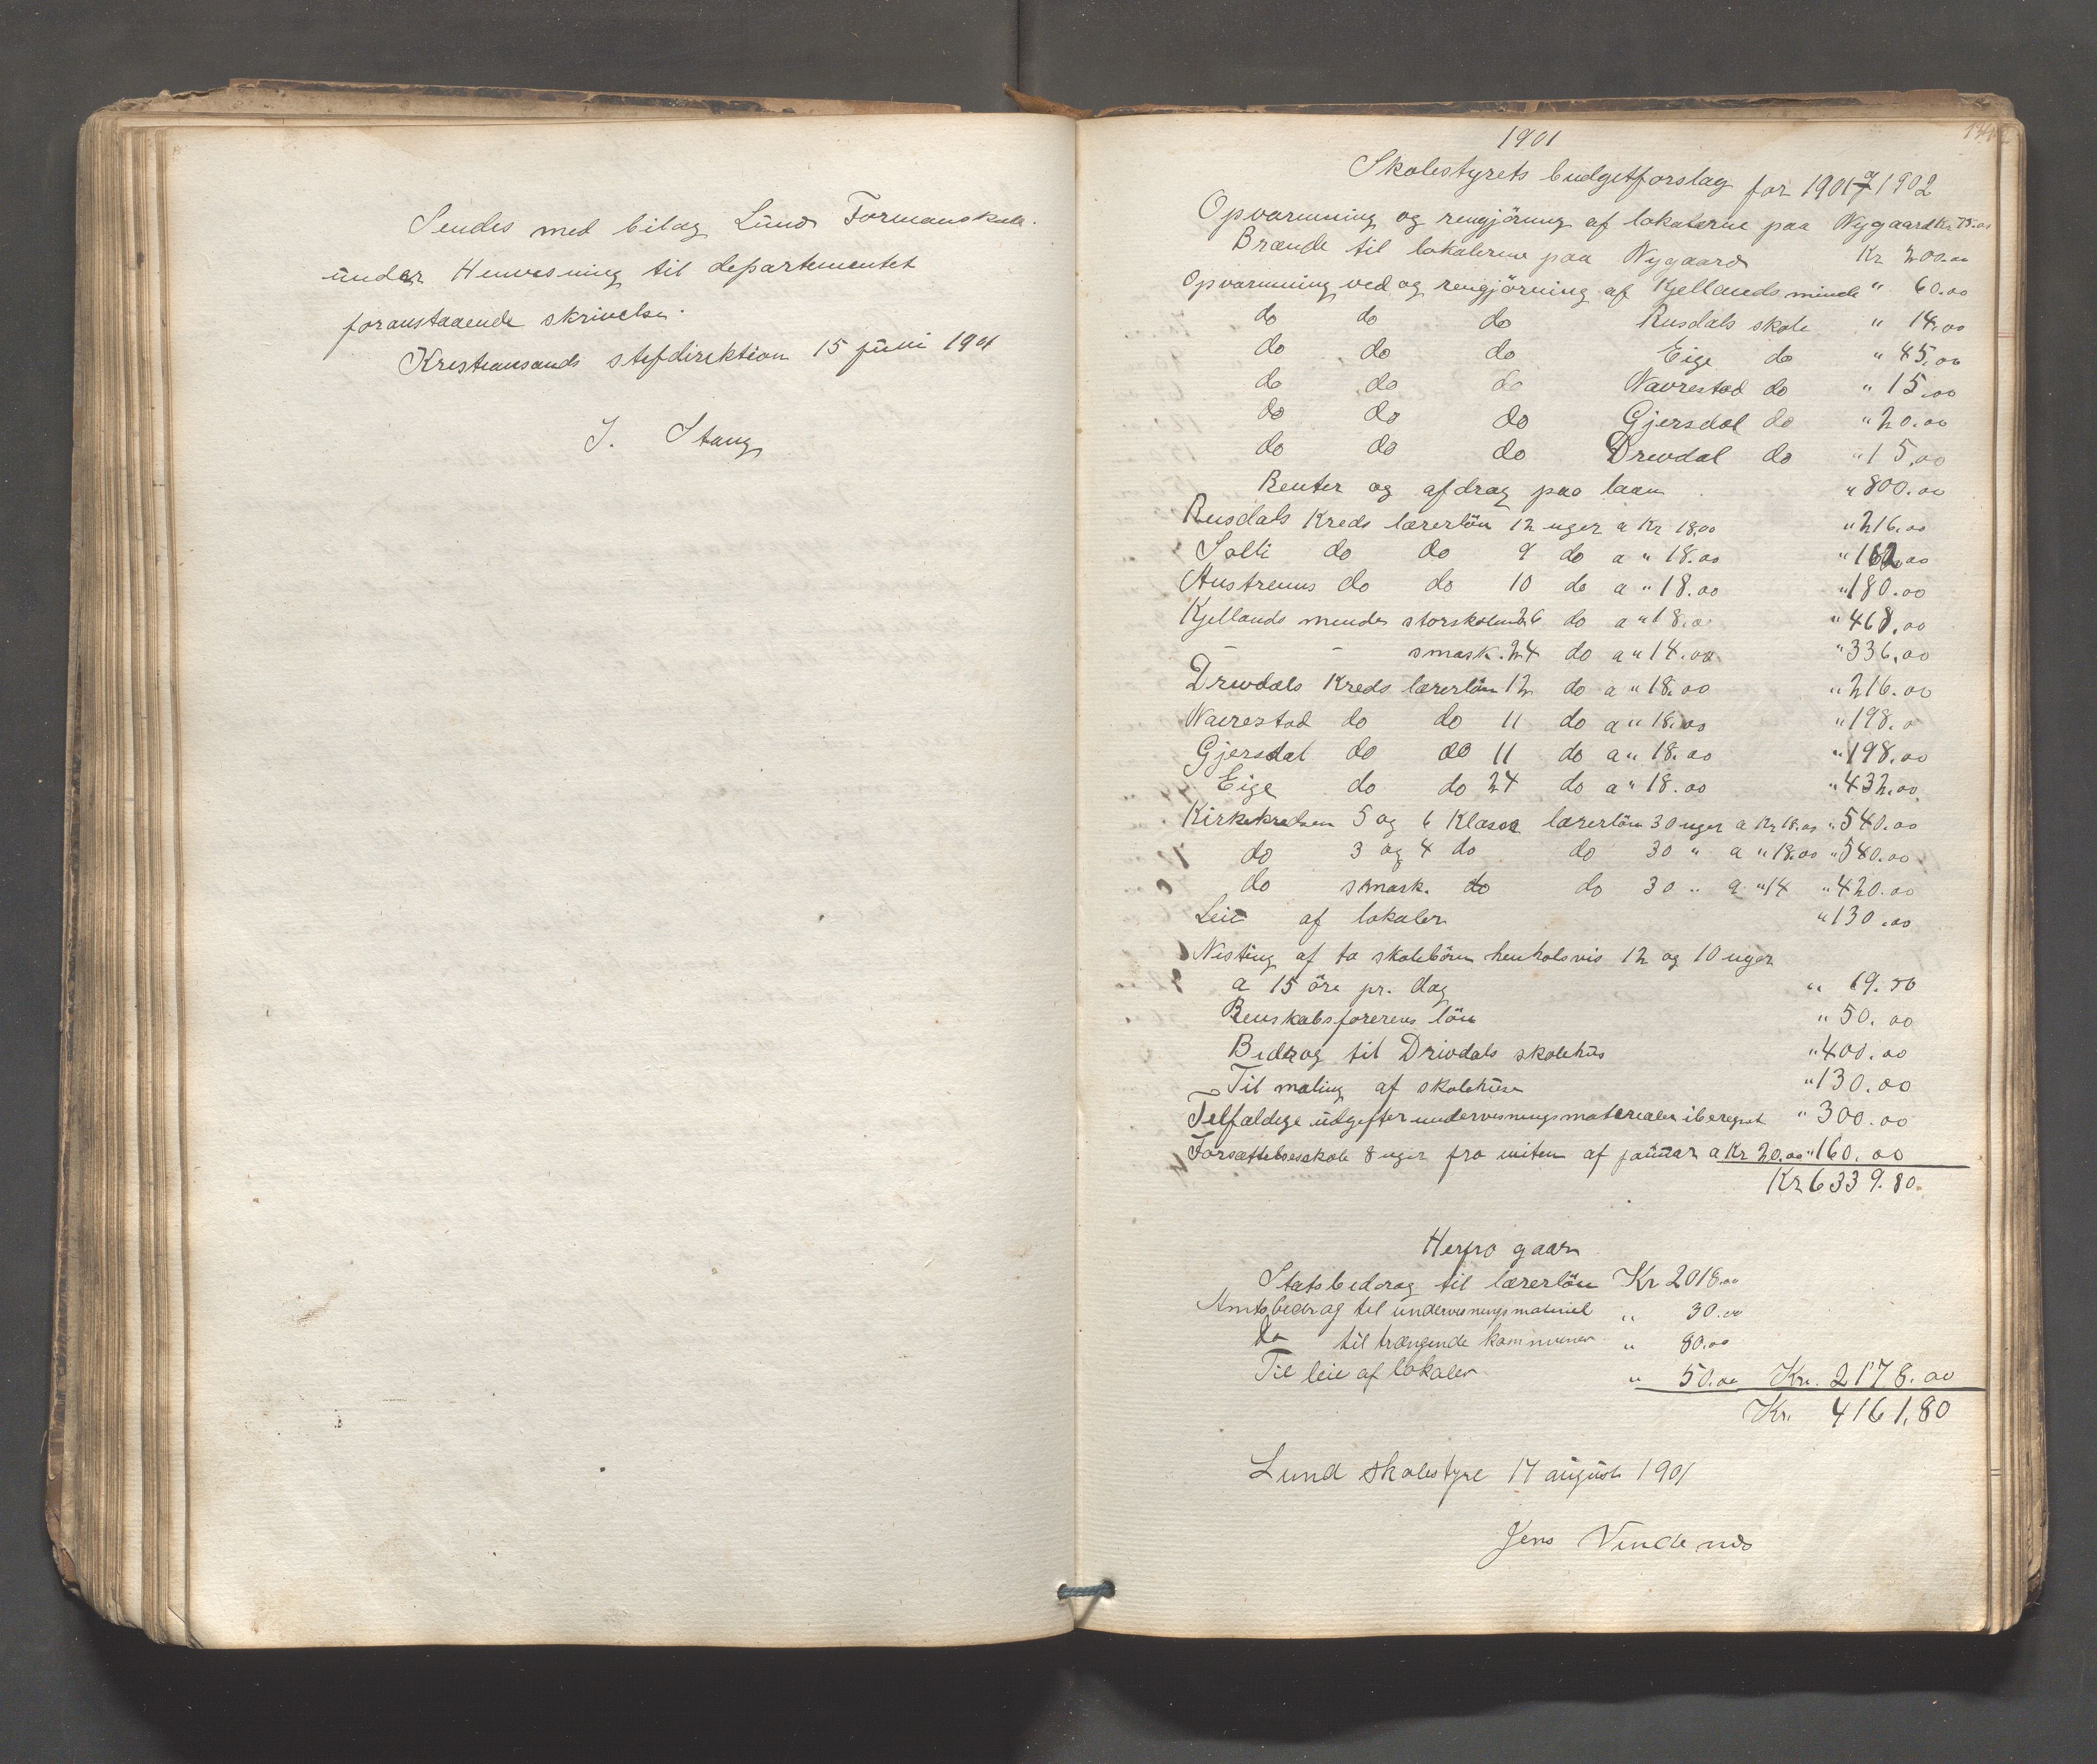 Sendes med bilag Lund Formanskab.
under Henvisning til departementet
foranstaaende skrivelse.
Kristiansands stifdirektion 15 juni 1901
J. Stang
1901
Skolestyrets budgetforslag for 1901 1902
Opvarmning og rengjöring af lokalerne paa Nygaard Kr 75.00
Brænde til lokalerne paa Nygaard Kr 200.00
Opvarmning ved og rengjörning af Kjellands minde " 60.00
do do do Rusdals skole " 14.00
do do do Eige do " 45.00
do do do Navrestad do " 15.00
do do do Gjersdal do " 20.00
do do do Drivdal do " 15.00
Renter og afdrag paa laan " 800.00
Rusdals Kreds lærerlön 12 uger a Kr 18.00 " 216.00
Salti do do 9 do a " 18.00 " 162.00
Austrums do do 10 do a " 18.00 " 180.00
Kjellands mindes storskolen 26 do a " 18.00 " 468.00
- - smask. 24 do a " 14.00 " 336.00
Drivdals Kreds lærerlön 12 do a " 18.00 " 216.00
Navrestad do do 11 do a " 18.00 " 198.0
Gjersdal do do 11 do a " 18.00 " 198.00
Eige do do 24 do a " 18.00 " 432.00
Kirkekredsen 5 og 6 Klasse lærerlön 30 uger a Kr 18.00 " 540.00
do 3 og 4 do do 30 " a " 18.00 " 540.00
do smask. do do 30 " a " 14 " 420.00
Leie af lokaler " 130.00
Nisting af to skolebörn henholsvis 12 og 10 uger
a 15 öre pr. dag " 19.80
Renskabsförerens lön " 50.00
Bidrag til Drivdals skolehus " 400.00
Til maling af skolehuse " 130.00
Tilfældige udgifter undervisningsmaterialer iberegnet " 300.00
Forsættelsesskole 8 uger fra miten af januar a Kr 20.00 " 160.00
Kr 6339.80
Herfra gaar
Statsbidrag til lærerlön Kr 2018.00
Amtsbidrag til undervisningsmateriel " 30.00
do til trængende kommuner " 80.00
Til leie af lokaler " 50.00 Kr. 2178.00
Kr. 4161,80
Lund skolestyre 17 august 1901
Jens